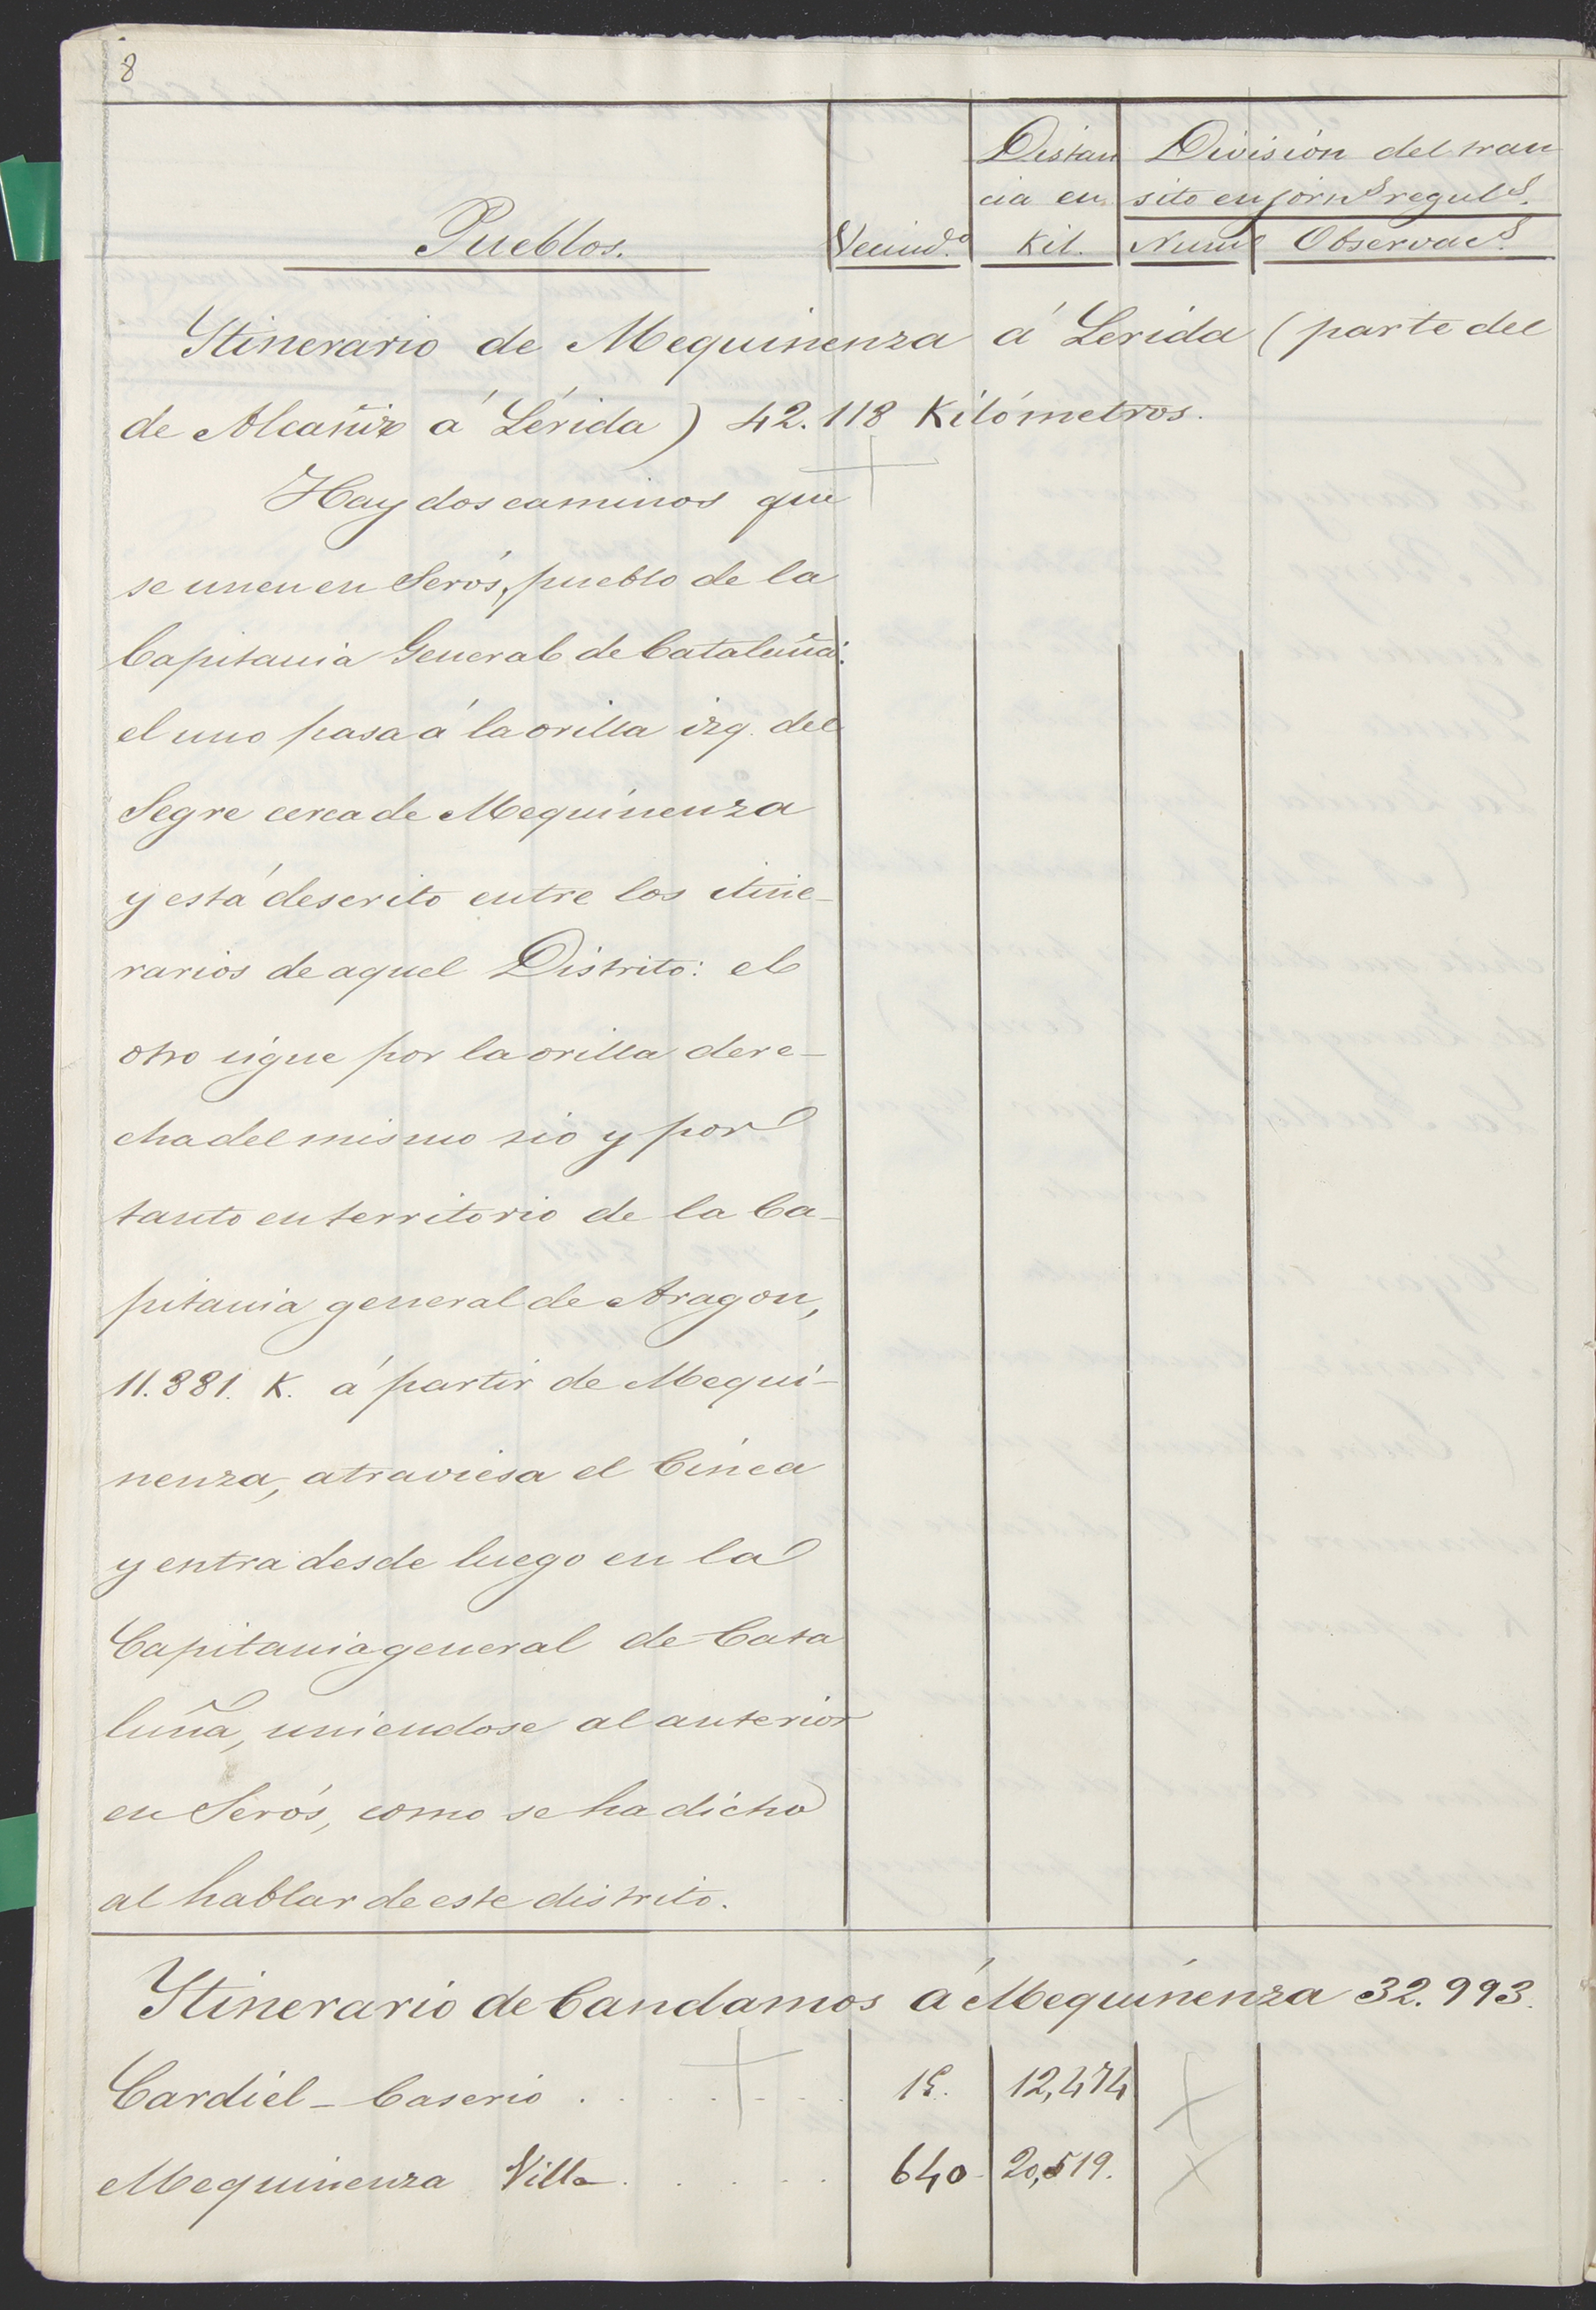 8
Distan División del tran
cia en sito en jorns reguls.
Pueblos. Vecindo. Kil. Nume Observacs.
Itinerario de Mequinenza á Lerida (parte del
de Alcañiz á Lérida) 42.118 Kilómetros.
Hay dos caminos que
se unen en Serós, pueblo de la
Capitania General de Cataluña:
el uno pasa á la orilla izq. del
Segre cerca de Mequinenza
y está descrito entre los itine-
rarios de aquel Distrito: el
otro sigue por la orilla dere-
cha del mismo rio y por
tanto en territorio de la Ca-
pitania general de Aragon,
11.881. K. á partir de Mequi-
nenza, atraviesa el Cinca
y entra desde luego en la
Capitania general de Cata
luña, uniendose al anterior
en Serós, como se ha dicho
al hablar de este distrito.
Itinerario de Candamos á Mequinenza 32.993.
Cardiel - Caserio . . . . . . 15. 12,474
Mequinenza Villa . . . . 640 20,519.